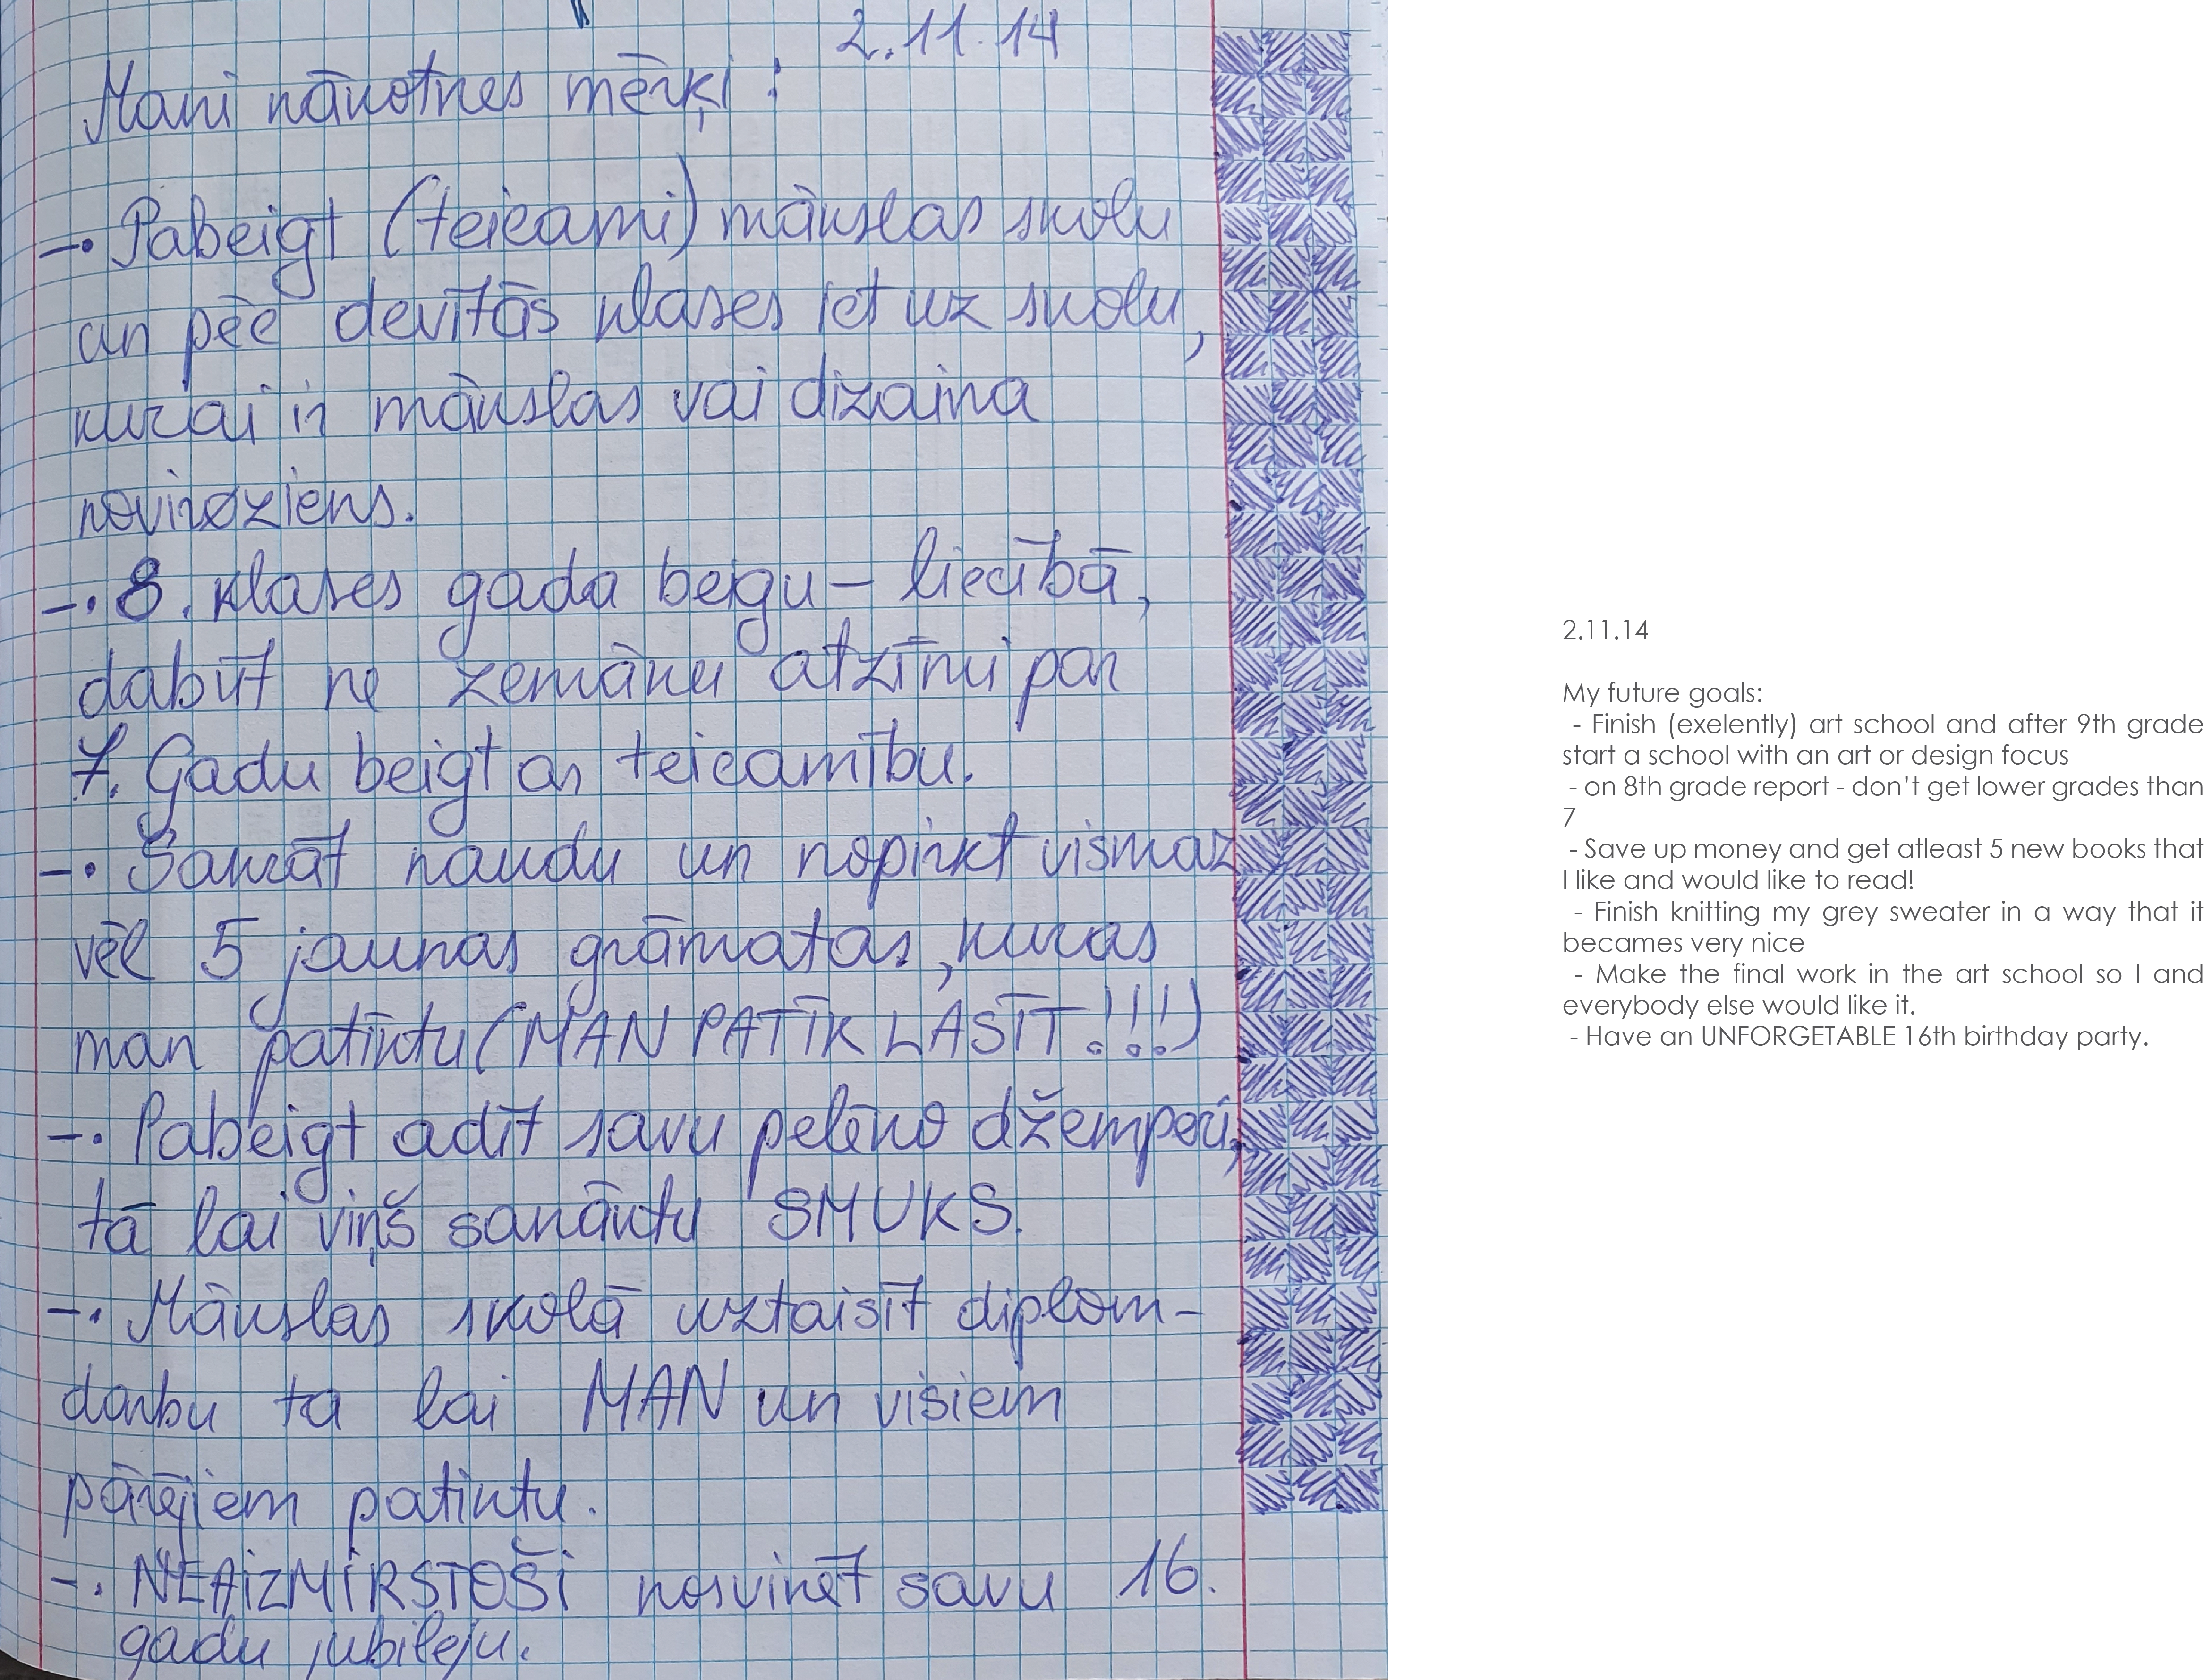 2.11.14
Mani nākotnes mērķi:
-• Pabeigt (teicami) mākslas skolu
un pēc devītās klases iet uz skolu,
kurai ir mākslas vai dizaina
novirziens.
-• 8. klases gada beigu - liecībā,
dabūt ne zemāku atzīmi par
7. Gadu beigt ar teicamību.
-• Sakrāt naudu un nopirkt vismaz
vēl 5 jaunas grāmatas, kuras
man patiktu (MAN PATĪK LASĪT!!!)
-• Pabeigt adīt savu pelēko džemperi,
tā lai viņš sanāktu SMUKS.
-• Mākslas skolā uztaisīt diplom-
darbu ta lai MAN un visiem
pārējiem patiktu.
-• NEAIZMIRSTOŠI nosvinēt savu 16.
gadu jubileju.
2.11.14
My future goals:
- Finish (exelently) art school and after 9th grade
start a school with an art or design focus
- on 8th grade report - don't get lower grades than
7
- Save up money and get atleast 5 new books that
I like and would like to read!
- Finish knitting my grey sweater in a way that it
becames very nice
- Make the final work in the art school so I and
everybody else would like it.
- Have an UNFORGETABLE 16th birthday party.